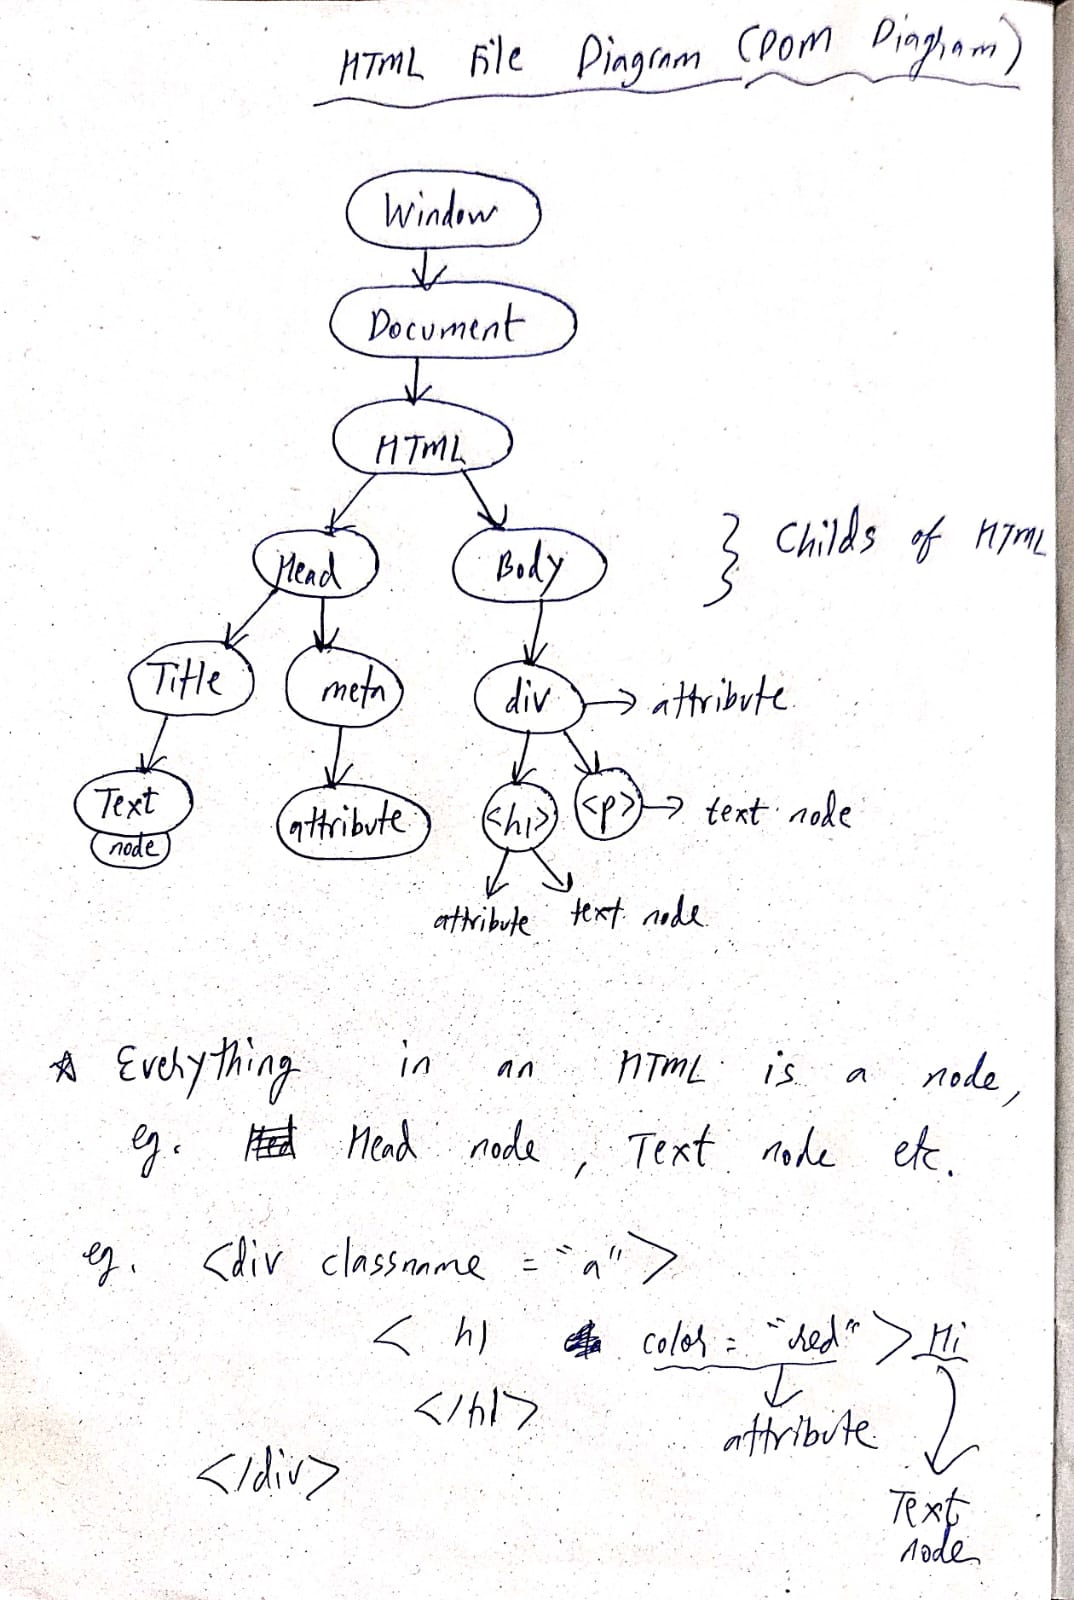 HTML File Diagram (DOM Diagram)
Window
Document
HTML
Head Body } Childs of HTML
Title meta div → attribute
Text node attribute <h1> <p> → text node
attribute text node
☆ Everything in an HTML is a node,
eg. Head node, Text node etc.
eg. <div classname = "a">
< h1 color = "red" > Hi
</h1>
attribute
</div>
Text
node